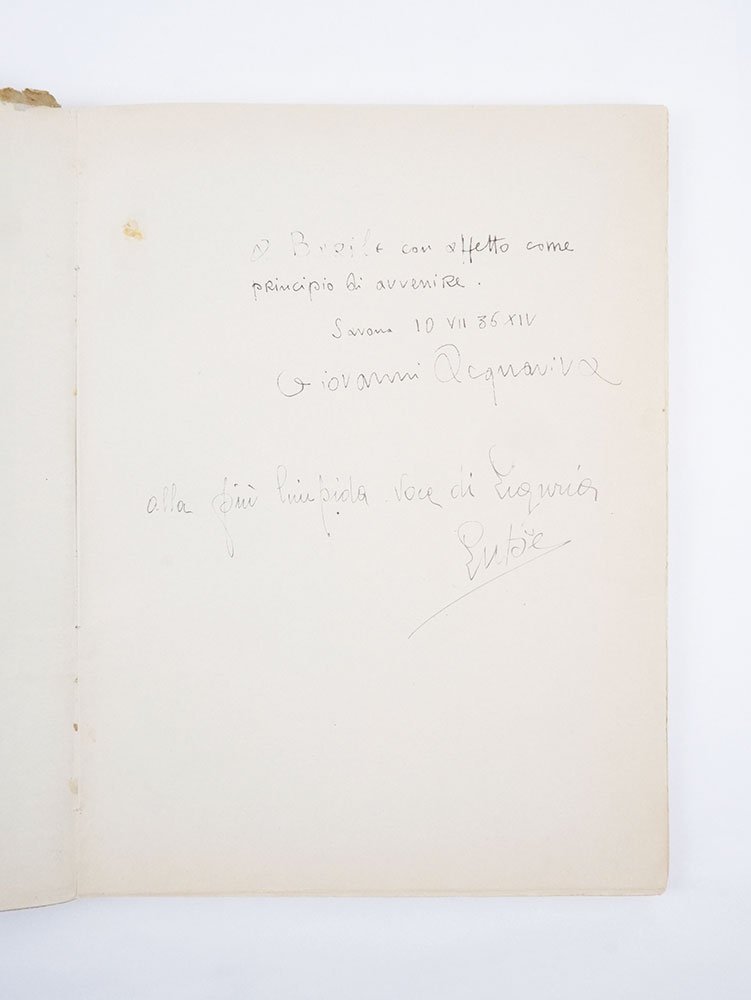 con affetto come
principio di avvenire.
Savona 10 VII 36 XIV
Giovanni Acquaviva
alla più limpida voce di Liguria